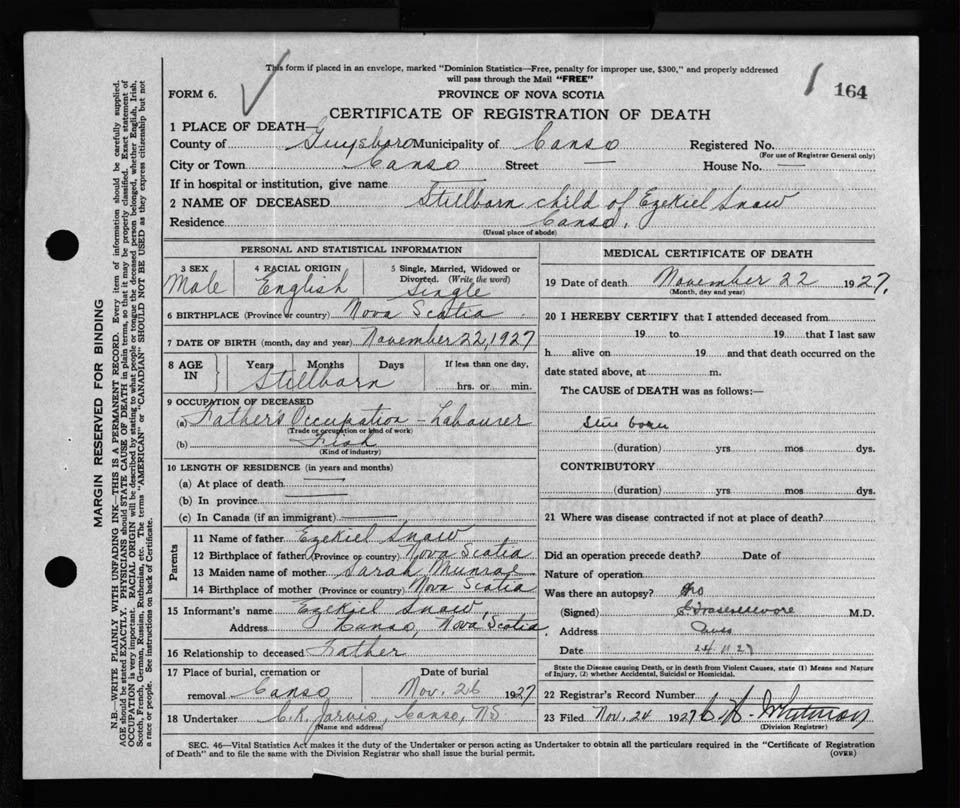 This form if placed in an envelope, marked "Dominion Statistics—Free, penalty for improper use, $300," and properly addressed
will pass through the Mail "FREE"
164
FORM 6.
PROVINCE OF NOVA SCOTIA
CERTIFICATE OF REGISTRATION OF DEATH
1 PLACE OF DEATH—
County of Guysboro Municipality of Canso Registered No.
(For use of Registrar General only)
City or Town Canso Street — House No. —
If in hospital or institution, give name
2 NAME OF DECEASED Stillborn child of Ezekiel Snow
Residence Canso,
(Usual place of abode)
PERSONAL AND STATISTICAL INFORMATION
3 SEX
Male
4 RACIAL ORIGIN
English
5 Single, Married, Widowed or
Divorced. (Write the word)
Single
6 BIRTHPLACE (Province or country) Nova Scotia
7 DATE OF BIRTH (month, day and year) November 22, 1927
8 AGE
IN
Years Months Days
Stillborn
If less than one day,
hrs. or min.
9 OCCUPATION OF DECEASED
(a) Father's Occupation — Labourer
(Trade or occupation or kind of work)
(b) Fish
(Kind of industry)
10 LENGTH OF RESIDENCE (in years and months)
(a) At place of death —
(b) In province —
(c) In Canada (if an immigrant) —
Parents
11 Name of father Ezekiel Snow
12 Birthplace of father (Province or country) Nova Scotia
13 Maiden name of mother Sarah Munroe
14 Birthplace of mother (Province or country) Nova Scotia
15 Informant's name Ezekiel Snow,
Address Canso, Nova Scotia
16 Relationship to deceased Father
17 Place of burial, cremation or
removal Canso
Date of burial
Nov. 26 1927
18 Undertaker C. K. Jarvis, Canso, NS
(Name and address)
MEDICAL CERTIFICATE OF DEATH
19 Date of death November 22 1927.
(Month, day and year)
20 I HEREBY CERTIFY that I attended deceased from
19 to 19 that I last saw
h alive on 19 and that death occurred on the
date stated above, at m.
The CAUSE of DEATH was as follows:—
Still born
(duration) yrs mos dys.
CONTRIBUTORY
(duration) yrs mos dys.
21 Where was disease contracted if not at place of death?
Did an operation precede death? Date of
Nature of operation
Was there an autopsy? No
(Signed) M.D.
Address Canso
Date 24 11 27
State the Disease causing Death, or in death from Violent Causes, state (1) Means and Nature
of Injury, (2) whether Accidental, Suicidal or Homicidal.
22 Registrar's Record Number
23 Filed Nov. 24 1927 Whitman
(Division Registrar)
SEC. 46—Vital Statistics Act makes it the duty of the Undertaker or person acting as Undertaker to obtain all the particulars required in the "Certificate of Registration
of Death" and to file the same with the Division Registrar who shall issue the burial permit.
(OVER)
MARGIN RESERVED FOR BINDING
N.B.—WRITE PLAINLY WITH UNFADING INK—THIS IS A PERMANENT RECORD. Every item of information should be carefully supplied.
AGE should be stated EXACTLY. PHYSICIANS should STATE CAUSE OF DEATH in plain terms, so that it may be properly classified. Exact statement of
OCCUPATION is very important. RACIAL ORIGIN will be described by stating to what people or tongue the deceased person belonged, whether English, Irish,
Scotch, French, German, Russian, Ruthenian, etc. The terms "AMERICAN" or "CANADIAN" SHOULD NOT BE USED as they express citizenship but not
a race or people. See instructions on back of Certificate.